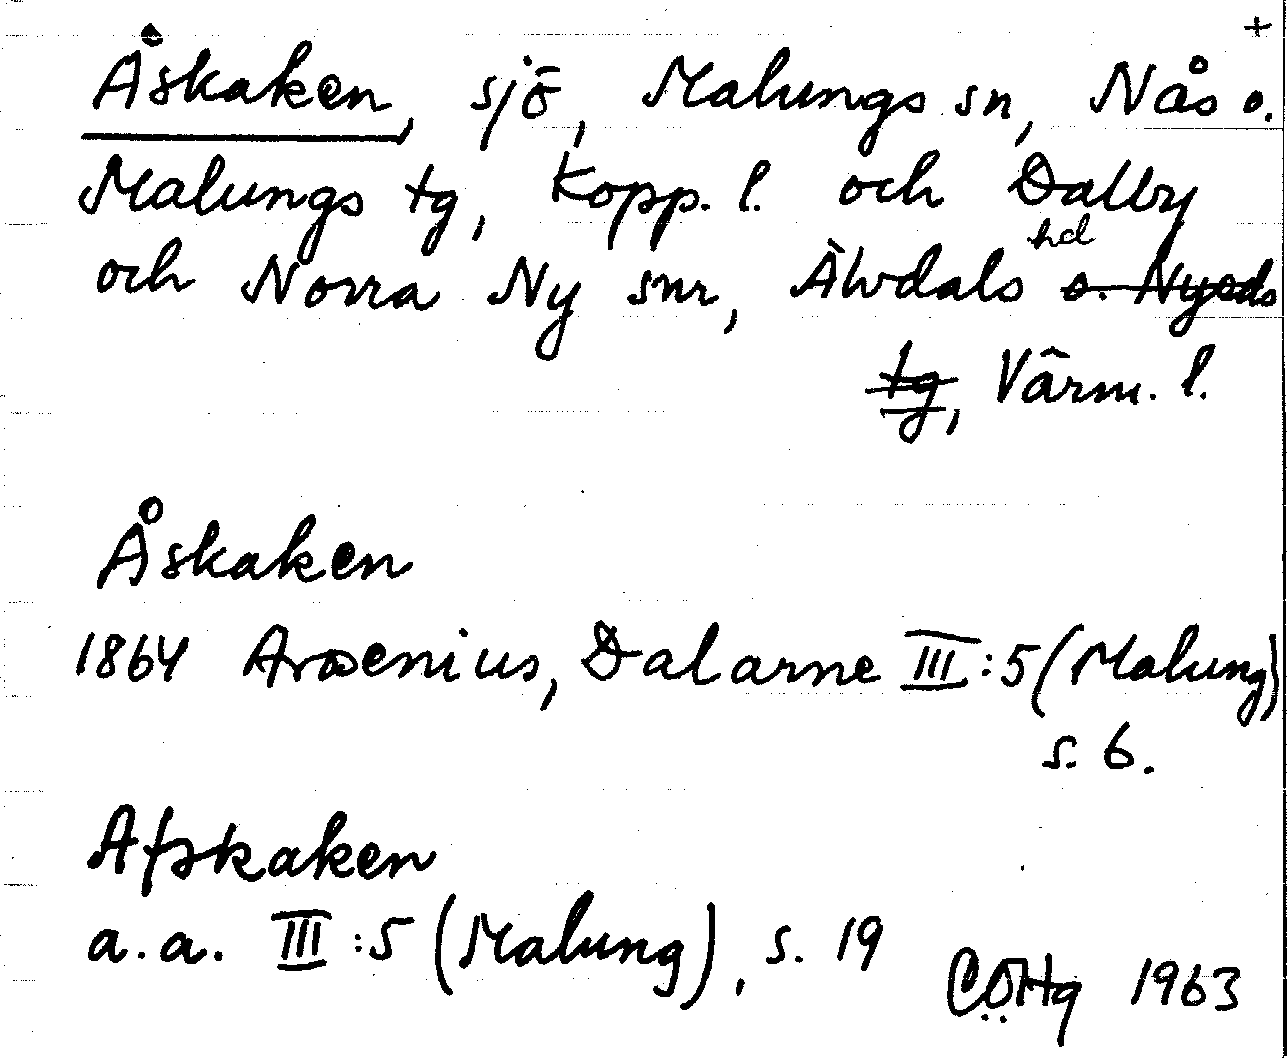 +
Åskaken, sjö, Malungs sn, Nås o.
Malungs tg, Kopp. l. och Dalby
och Norra Ny snr, Älvdals hd o. Nyeds
tg, Värm. l.
Åskaken
1864 Arosenius, Dalarne III:5 (Malung)
s. 6.
Afskaken
a.a. III:5 (Malung), s. 19
CÖHg 1963